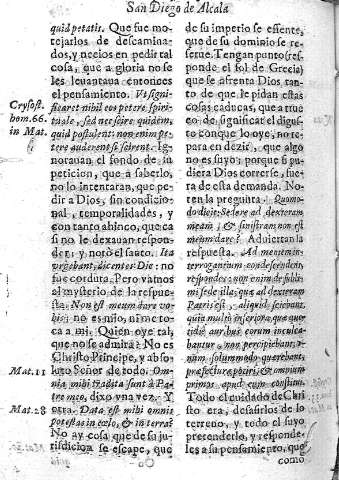 San Diego de Alcala
quid petatis. Que fue mo-
tejarlos de descamina-
dos, y necios en pedir tal
cosa, que a gloria no se
les leuantaua entonces
el pensamiento. Vt signi-
ficaret nihil eos petere spiri-
tuale, sed nec scire quidem,
quid postulent: non enim pe-
tere auderent si scirent. Ig-
norauan el fondo de su
peticion, que a saberlo,
no lo intentaran, que pe-
dir a Dios, sin condicio-
nal, temporalidades, y
con tanto ahinco, que ca
si no le dexauan respon-
der; y notò el santo. Ita
vrgebant, dicenter Die: no
fue cordura. Pero vamos
al mysterio de la respue-
sta. Non est meum dare vo-
bis; no es mio, ni me to-
ca a mi. Quien oye tal,
que no se admira? No es
Christo Principe, y abso-
luto Señor de todo. Om-
nia mihi tradita sunt à Pa-
tre meo, dixo vna vez. Y
otra. Data est mihi omnis
potestas in cœlo, & in terra?
No ay cosa que de su ju-
risdicion se escape, que
Crysost.
hom. 66.
in Mat.
Mat. 11
Mat. 28
de su imperio se essente,
que de su dominio se re-
serue. Tengan punto (res-
ponde el sol de Grecia)
que se afrenta Dios tan-
to de que le pidan estas
cosas caducas, que a true
co de significar el disgus-
to con que lo oye, no re-
para en dezir, que algo
no es suyo; porque si pu-
diera Dios correrse, fue-
ra de esta demanda. No-
ten la pregunta. Quomo-
do dicit: Sedere ad dexteram
meam, & sinistram non est
meum dare? Aduiertan la
respuesta. Ad mentem in-
terrogantium condescendens,
respondet: non enim de subli-
mi sede illa, quæ ad dexteram
Patris est, aliquid sciebant,
quia multò inferiora, quæ quo-
tidie aur bus eorum inculca-
bantur, non percipiebant;
nam solummodo quærebant,
præfecturæ potiri, & omnium
primos apud eum constitui.
Todo el cuidado de Chri
sto era, desasirlos de lo
terreno, y todo el suyo
pretenderlo, y responde-
les a su pensamiento, que
como